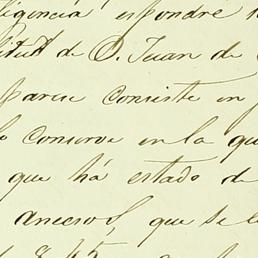 ligencia espondré
titud de D. Juan de
parece consiste en
conserva en la que
que há estado de
ancesos, que se
1845